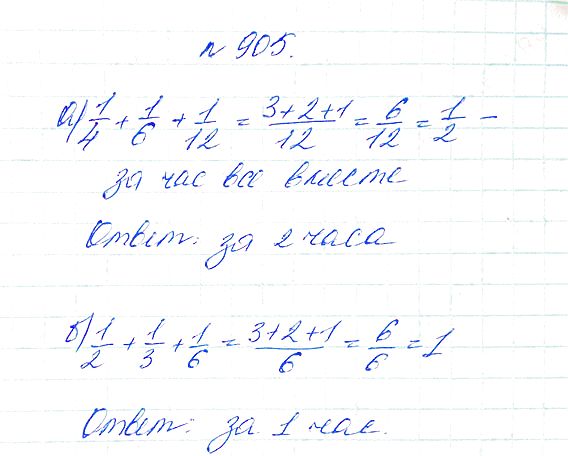 № 905.
а) 1/4 + 1/6 + 1/12 = (3+2+1)/12 = 6/12 = 1/2 –
за час все вместе
Ответ: за 2 часа
б) 1/2 + 1/3 + 1/6 = (3+2+1)/6 = 6/6 = 1
Ответ: за 1 час.